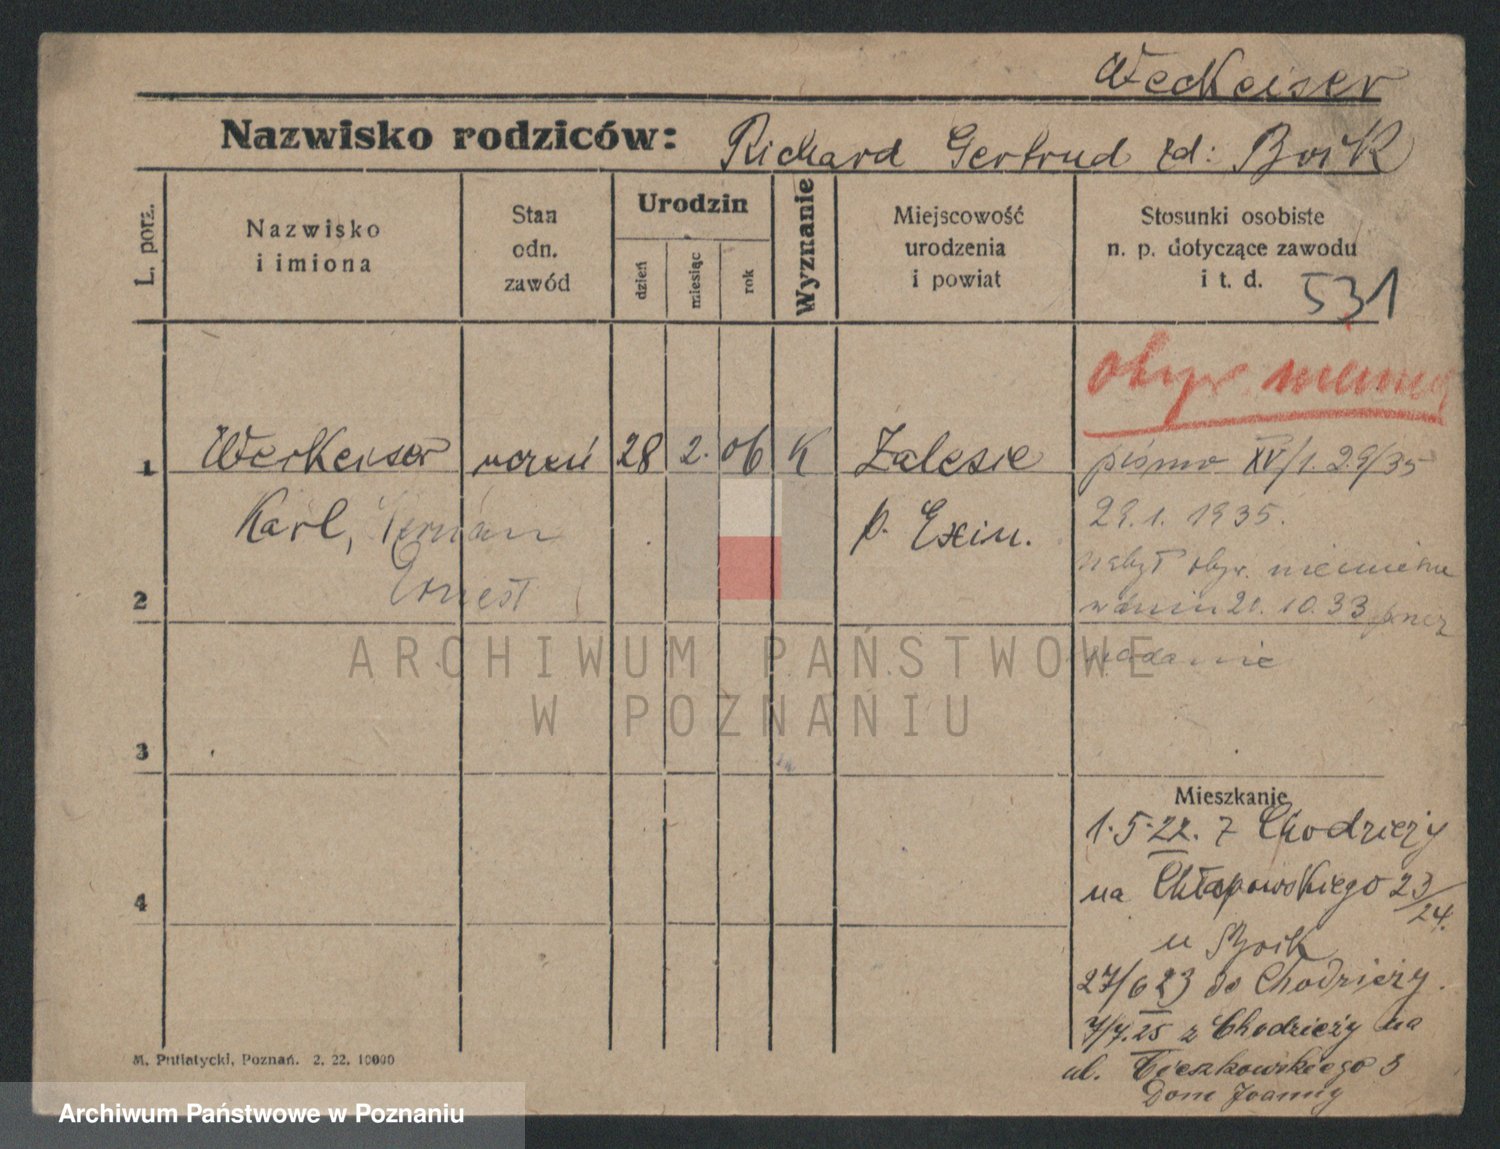 Weckeiser
Nazwisko rodziców: Richard Gertrud zd: Boik
L. porz.
Nazwisko
i imiona
Stan
odn.
zawód
Urodzin
dzień
miesiąc
rok
Wyznanie
Miejscowość
urodzenia
i powiat
Stosunki osobiste
n. p. dotyczące zawodu
i t. d.
531
obyw. niemiec
1 Weckeiser uczeń 28 2. 06 K Zalesie
pismo XV/1. 29/35
Karl, Ernest
p. Exin.
29. 1. 1935.
nabył obyw. niemieckie
2
w dniu 21. 10. 33 przez
nadanie
ARCHIWUM PAŃSTWOWE
W POZNANIU
3
Mieszkanie
1. 5. 22. z Chodzieży
na Chłapowskiego 23/24.
4
u Boik
27/6 23 do Chodzieży.
7/7. 25 z Chodzieży na
ul. Cieszkowskiego 3
Dom Joanny
M. Putiatycki, Poznań. 2. 22. 10000
Archiwum Państwowe w Poznaniu